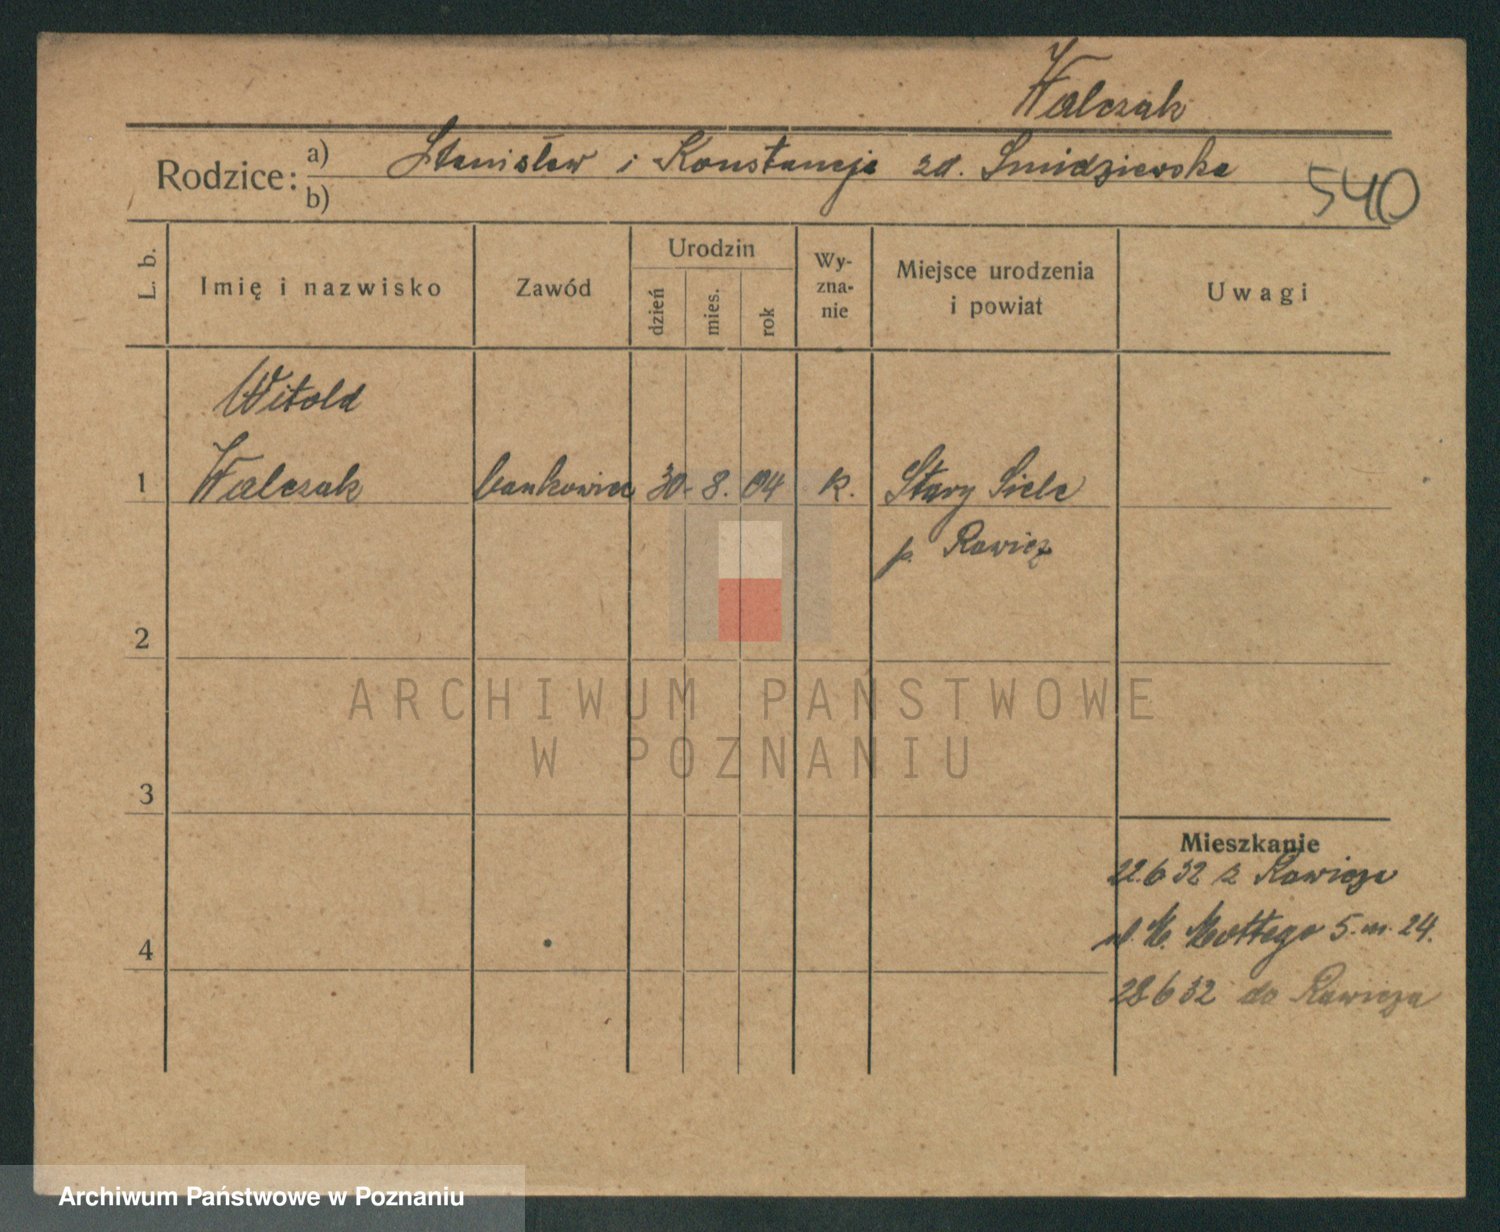 Walczak
Rodzice: a) Stanisław i Konstancja zd. Smidziewska
b)
540
L. b.
Imię i nazwisko
Zawód
Urodzin
dzień
mies.
rok
Wy-
zna-
nie
Miejsce urodzenia
i powiat
Uwagi
Witold
1 Walczak bankowiec 30. 8. 04 k. Stary Siele
p. Rawicz
2
ARCHIWUM PAŃSTWOWE
W POZNANIU
3
Mieszkanie
22.6 32 z Rawicza
M. Mottego 5. m. 24.
4
28 6 32 do Rawicza
Archiwum Państwowe w Poznaniu